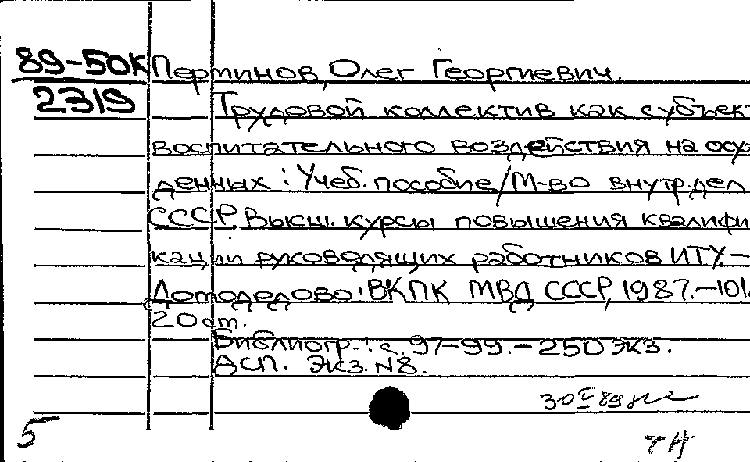 89-50К Перминов, Олег Георгиевич.
2319 Трудовой коллектив как субъек-
воспитательного воздействия на осу
денных : Учеб. пособие/М-во внутр. дел
СССР. Высш. курсы повышения квалифи
кации руководящих работников ИТУ.-
Домодедово: ВКПК МВД СССР, 1987.-101
20 см.
Библиогр.: с. 97-99.-250 экз.
ДСП. Экз. N8.
30 V 89
5